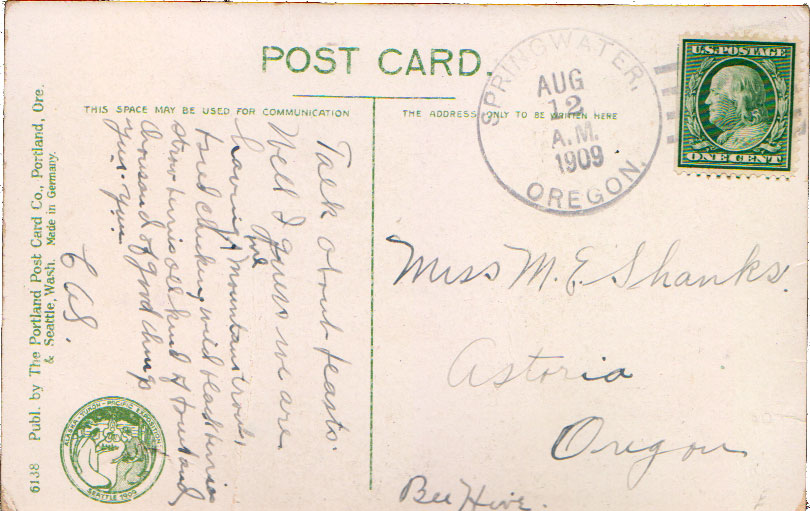 POST CARD.
THIS SPACE MAY BE USED FOR COMMUNICATION
THE ADDRESS ONLY TO BE WRITTEN HERE
SPRINGWATER,
AUG
12
A.M.
1909
OREGON.
U.S. POSTAGE
ONE CENT
Talk about feasts.
Well I guess we are
having fine mountain trout,
fried chicken, wild blackberries
strawberries all kind of fruit and
thousand of good things
yum-yum
Miss M. E. Shanks.
Astoria
Oregon
Bee Hive.
6138 Publ. by The Portland Post Card Co., Portland, Ore.
& Seattle, Wash. Made in Germany.
ALASKA-YUKON-PACIFIC EXPOSITION
SEATTLE 1909